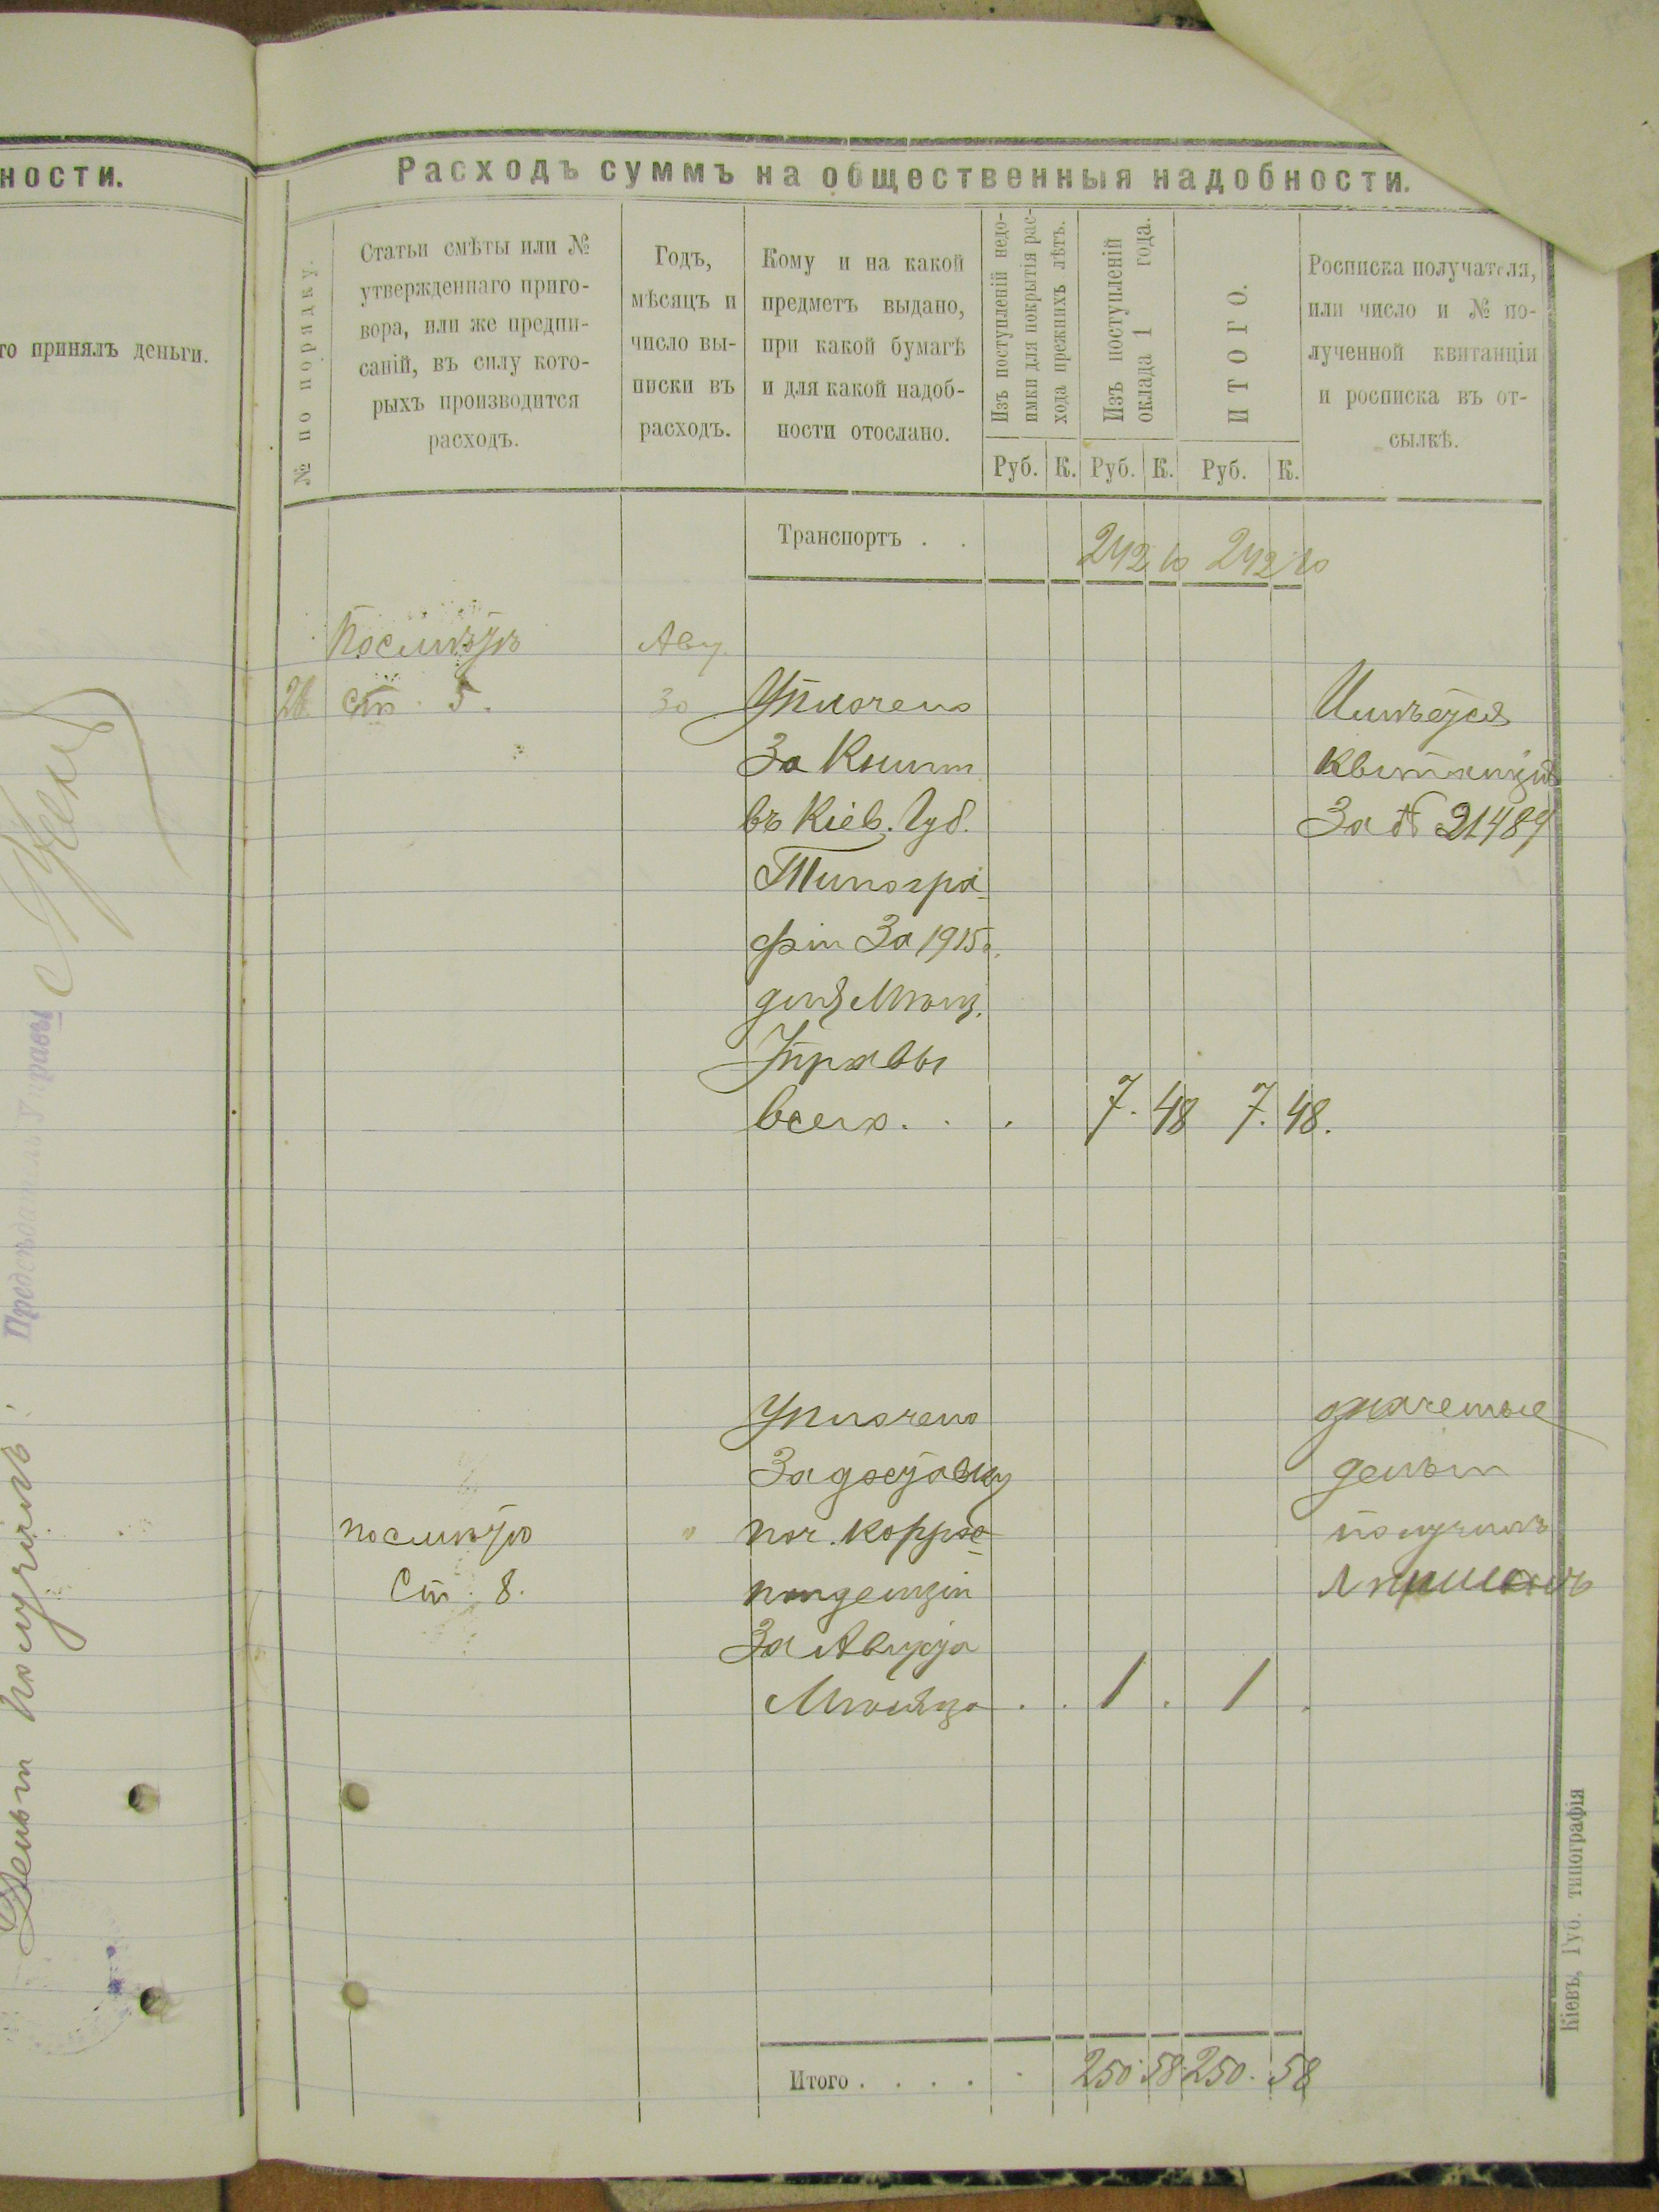 ности.
го принялъ деньги.
Предсѣдатель Управы
Деньги получилъ:
Расходъ суммъ на общественныя надобности.
№ по порядку.
Статьи смѣты или №
утвержденнаго приго-
вора, или же предпи-
саній, въ силу кото-
рыхъ производится
расходъ.
Годъ,
мѣсяцъ и
число вы-
писки въ
расходъ.
Кому и на какой
предметъ выдано,
при какой бумагѣ
и для какой надоб-
ности отослано.
Изъ поступленій недо-
имки для покрытія рас-
хода прежнихъ лѣтъ.
Изъ поступленій
оклада 1 года.
ИТОГО.
Росписка получателя,
или число и № по-
лученной квитанціи
и росписка въ от-
сылкѣ.
Руб. К. Руб. К. Руб. К.
Транспортъ . . 242 10 242 10
Авг.
ст. 5. 30 Уплочено Имѣется
За Книги квитанція
въ Кіев. Губ. За № 21489
Типогра-
фіи За 1915 г.
для Мѣщ.
Управы
всего . . . 7. 48 7. 48.
Уплочено
За доставку деньги
поч. Корре- получилъ
Ст. 8. понденціи
За Августа
Мѣсяца . . 1 . 1 .
Итого . . . . . 250 58 250. 58
Кіевъ, Губ. типографія